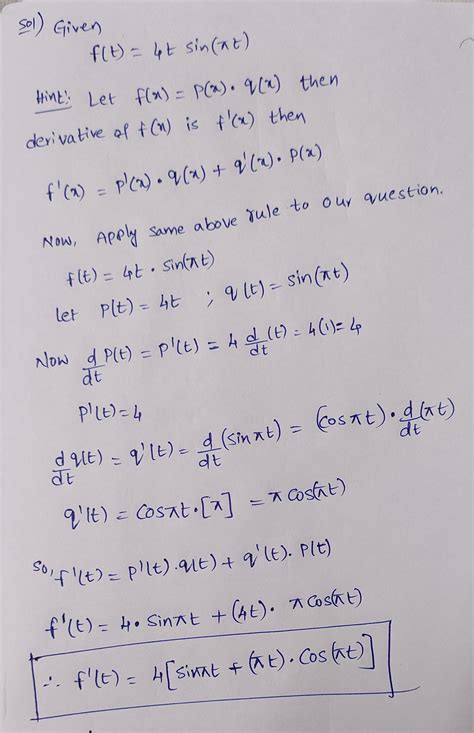 Sol) Given
f(t) = 4t sin(πt)
Hint: Let f(x) = P(x). q(x) then
derivative of f(x) is f'(x) then
f'(x) = p'(x) • q(x) + q'(x). P(x)
Now, Apply same above rule to our question.
f(t) = 4t • Sin(πt)
let P(t) = 4t ; q(t) = sin(πt)
Now d/dt P(t) = P'(t) = 4 d/dt (t) = 4(1) = 4
P'(t) = 4
d/dt q(t) = q'(t) = d/dt (sin πt) = (Cosπt) • d/dt (πt)
q'(t) = Cosπt • [π] = π Cos(πt)
So, f'(t) = P'(t) .q(t) + q'(t). P(t)
f'(t) = 4• Sinπt + (4t). π Cos(πt)
∴ f'(t) = 4[Sinπt + (πt). Cos(πt)]